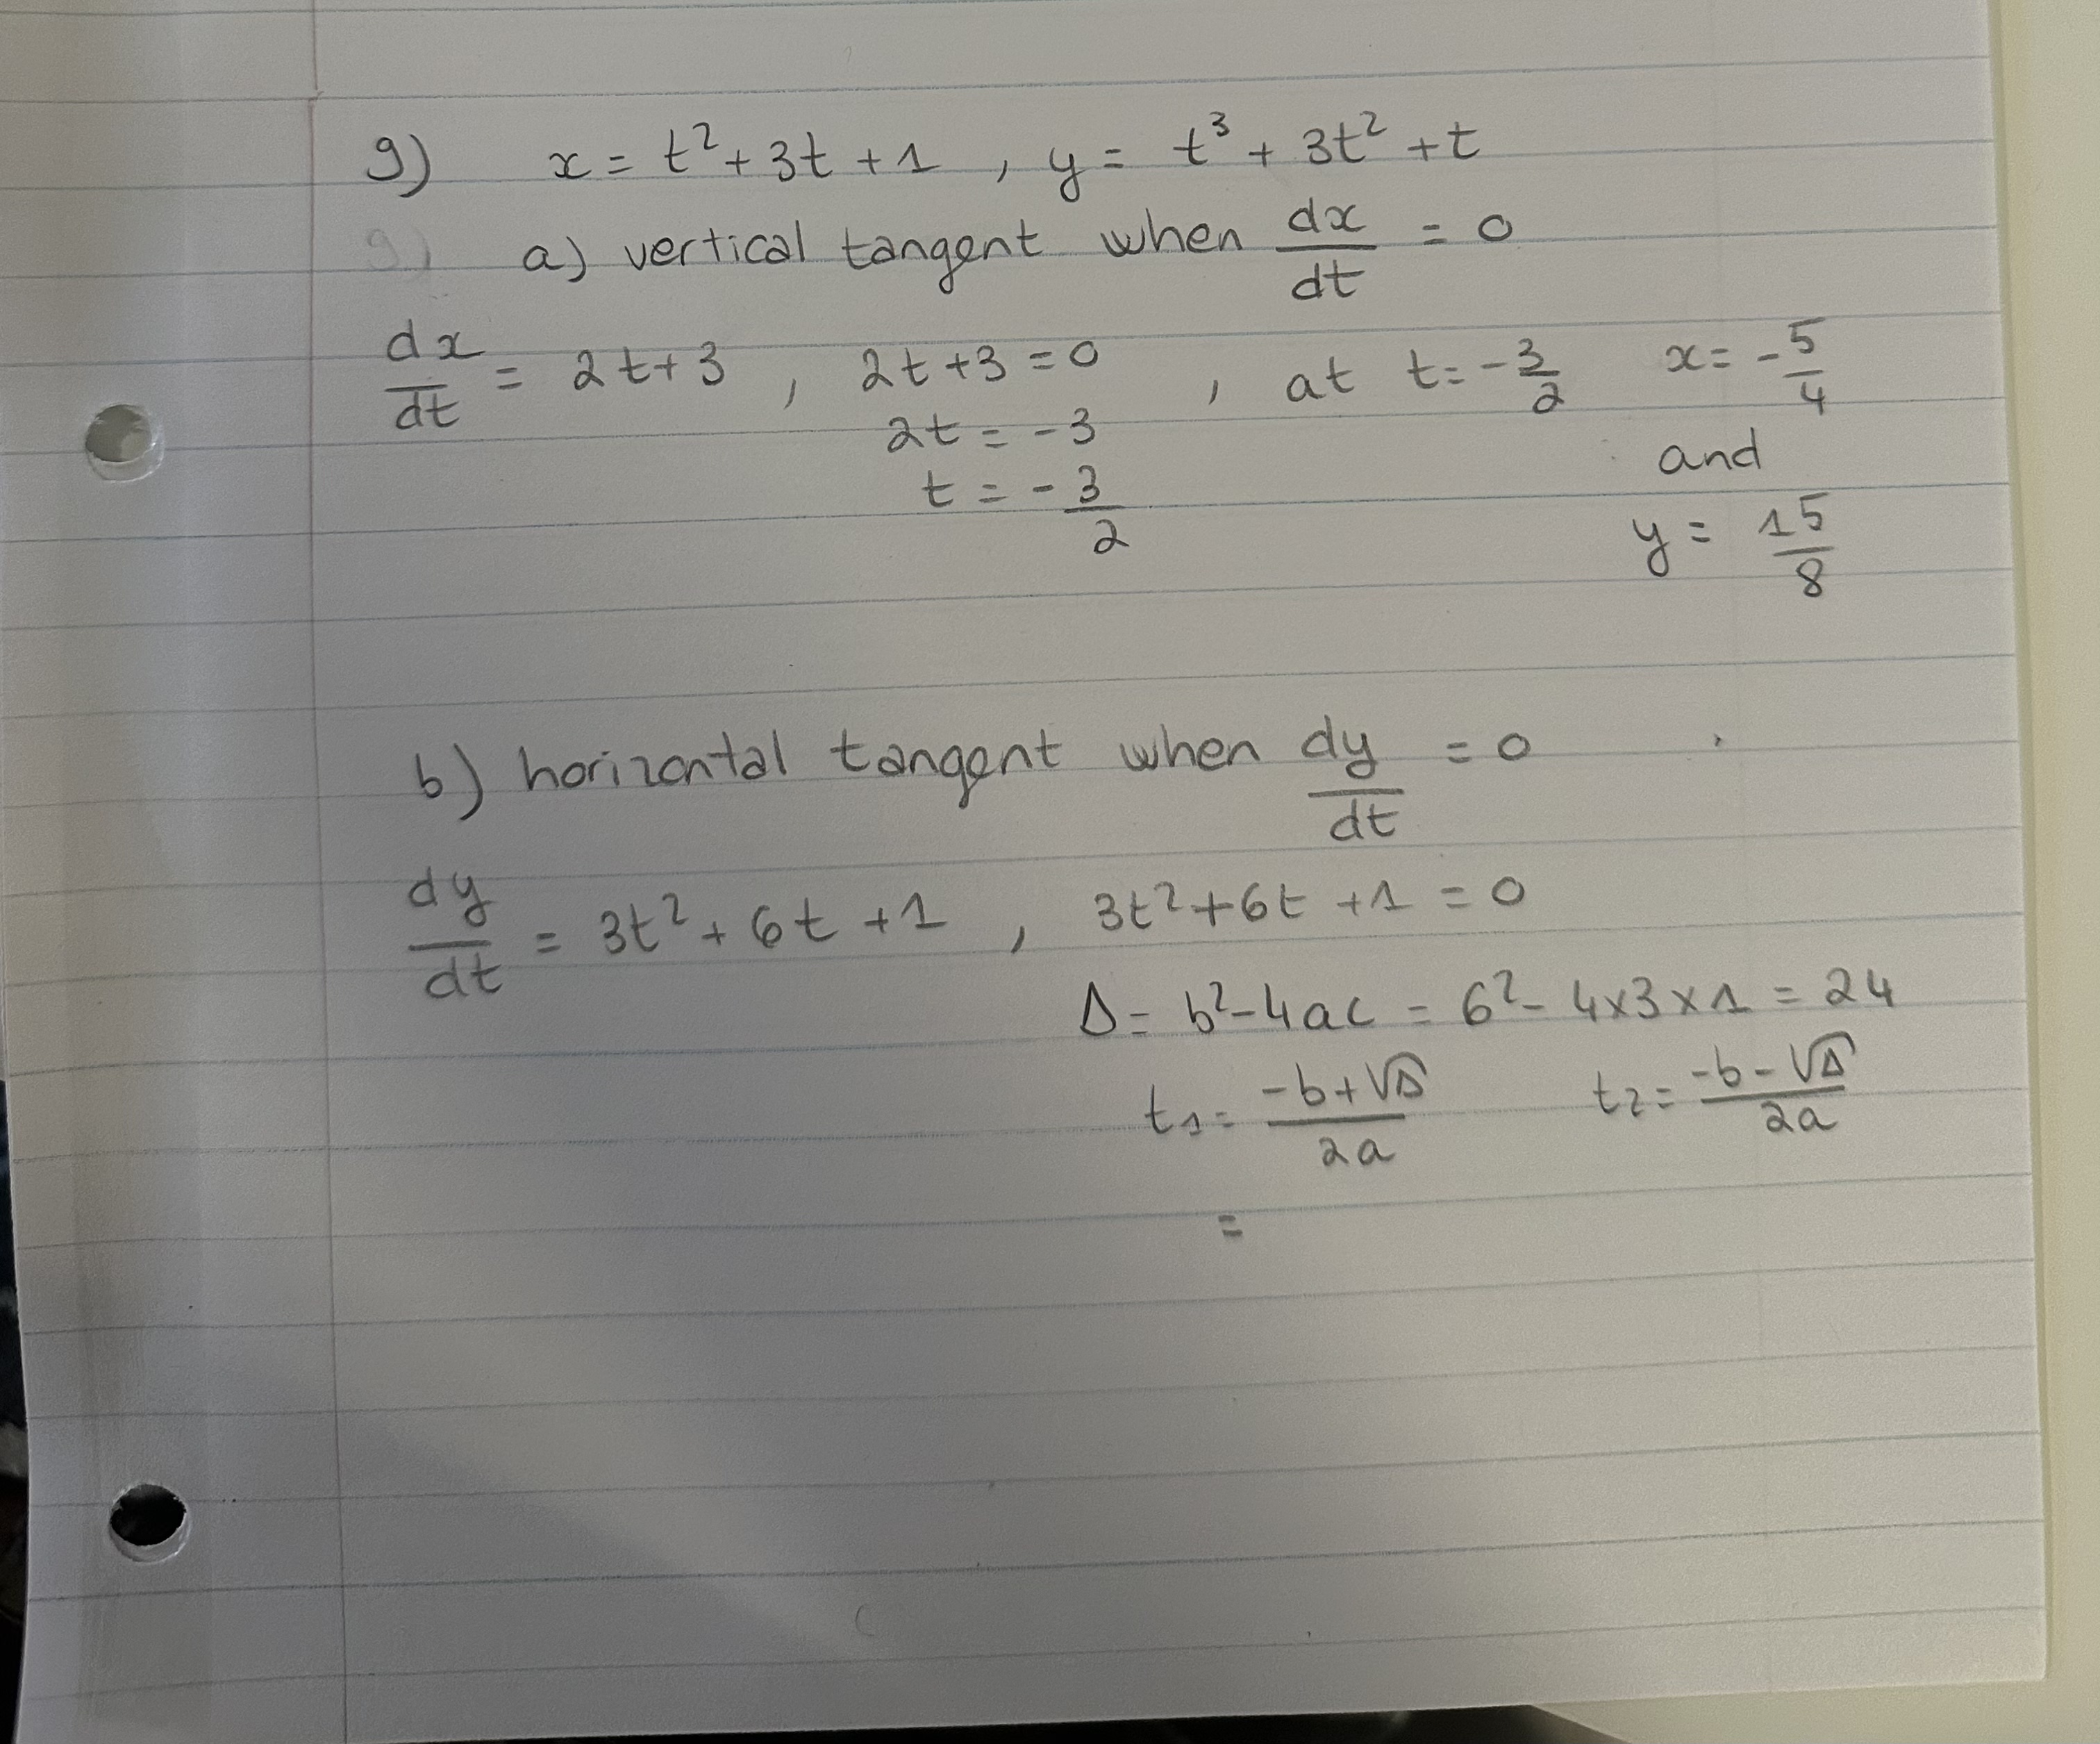 9) x = t² + 3t + 1 , y = t³ + 3t² + t
9) a) vertical tangent when dx/dt = 0
dx/dt = 2t+3 , 2t+3 = 0 , at t = -3/2 x = -5/4
2t = -3 and
t = -3/2 y = 15/8
b) horizontal tangent when dy/dt = 0
dy/dt = 3t² + 6t + 1 , 3t² + 6t + 1 = 0
Δ = b² - 4ac = 6² - 4×3×1 = 24
t₁ = (-b+√Δ)/2a t₂ = (-b-√Δ)/2a
=